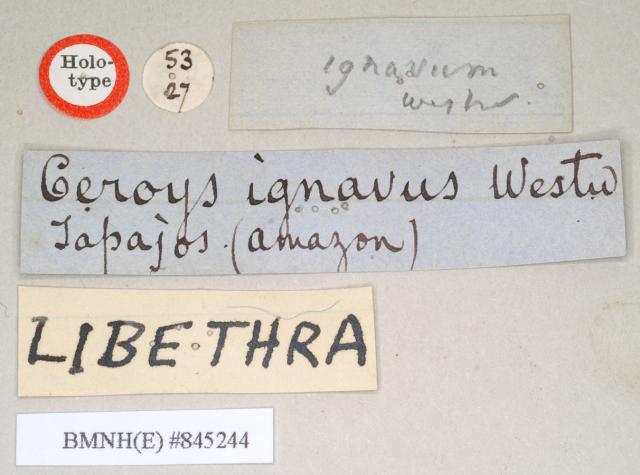 Holo-
type
53
27
ignavum
Westw.
Ceroys ignavus Westw
Tapajos. (amazon)
LIBETHRA
BMNH(E) #845244